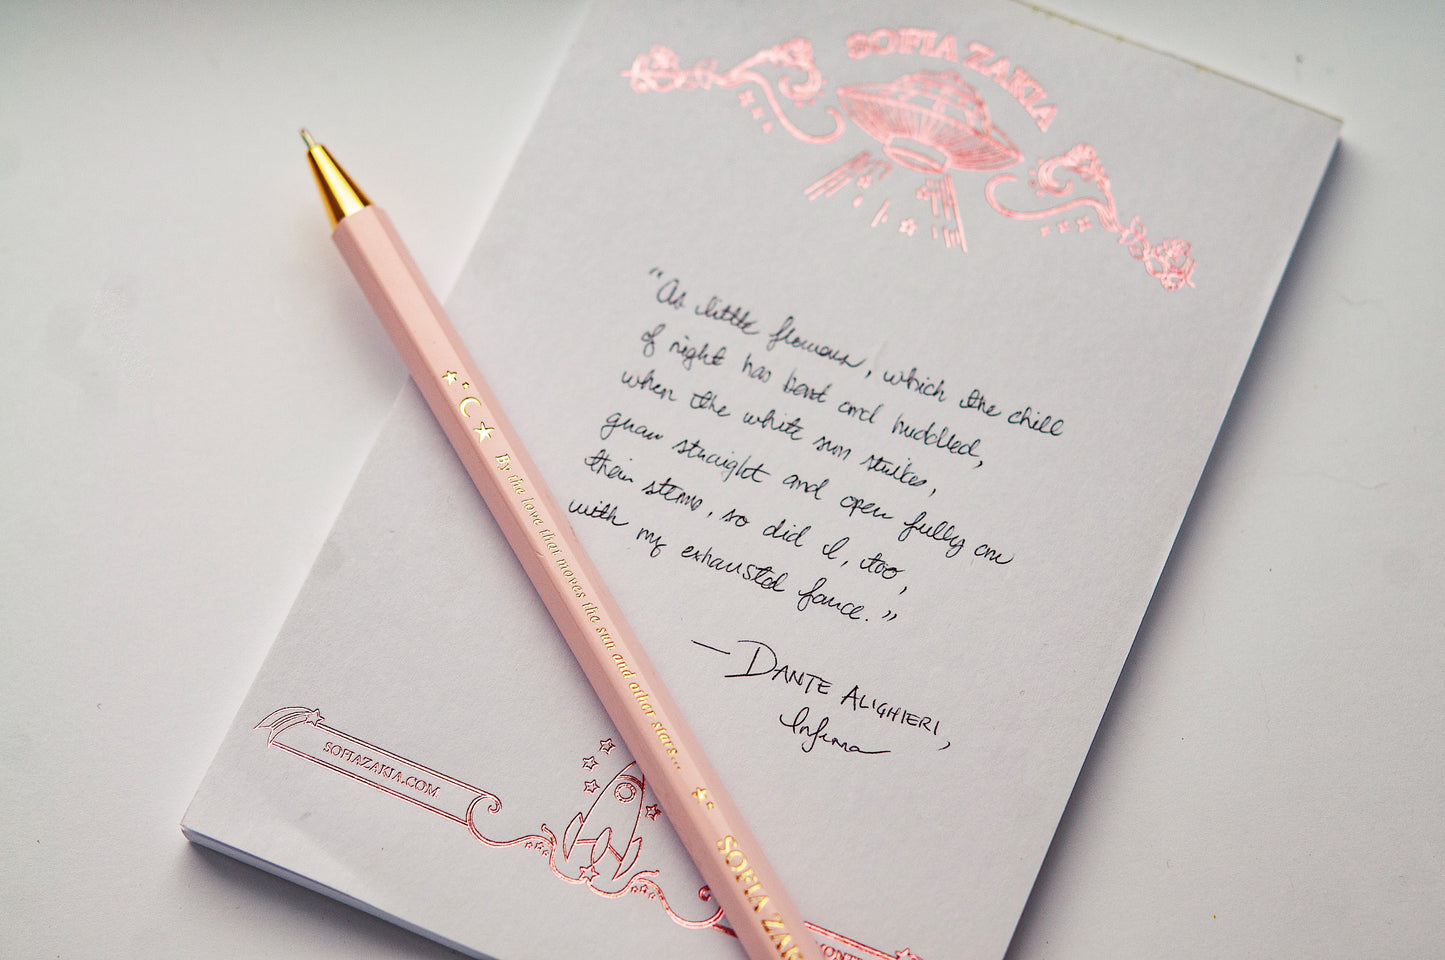 SOFIA ZAKIA
"As little flowers, which the chill
of night has bent and huddled,
when the white sun strikes,
grow straight and open fully on
their stems, so did I, too,
with my exhausted force."
— DANTE ALIGHIERI,
Inferno
By the love that moves the sun and other stars...
SOFIA ZAK
SOFIAZAKIA.COM